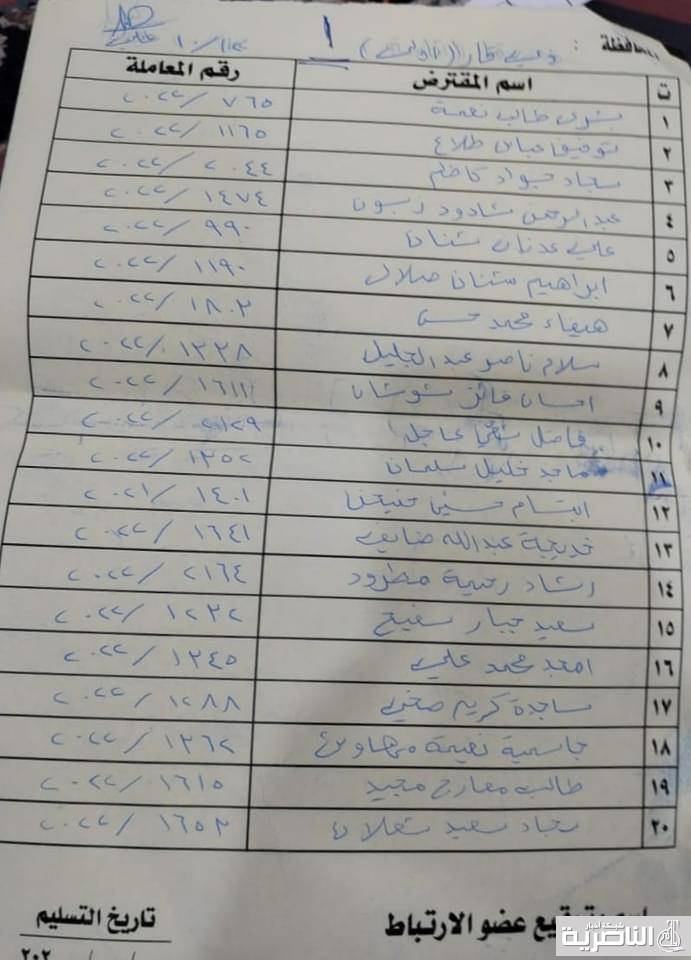 ١٠/١٢
محافظة : ذي قار (الناصرية) ١
ت اسم المقترض رقم المعاملة
١ بشرى طالب نعمة ٧٦٥ /٢٠٢٢
٢ توفيق عباس طلاع ١١٦٥ /٢٠٢٢
٣ سجاد جواد كاظم ٢٠٤٤ /٢٠٢٢
٤ عبد الرحمن شادود زبون ١٤٧٤ /٢٠٢٢
٥ علي عدنان شنان ٩٩٠ /٢٠٢٢
٦ ابراهيم شنان صلال ١١٩٠ /٢٠٢٢
٧ هيفاء محمد حسن ١٨٠٢ /٢٠٢٢
٨ سلام ناصر عبد الجليل ١٢٢٨ /٢٠٢٢
٩ احسان فائز شوشان ١٦١١ /٢٠٢٢
١٠ فاضل عاجل ٢١٢٩ /٢٠٢٢
١١ ماجد خليل سلمان ١٢٥٢ /٢٠٢٢
١٢ ابتسام حسين ١٤٠١ /٢٠٢١
١٣ خديجة عبدالله ضايف ١٦٤١ /٢٠٢٢
١٤ ارشاد رحمية مطرود ٢١٦٤ /٢٠٢٢
١٥ سعيد جبار سفيح ١٢٢٢ /٢٠٢٢
١٦ امجد محمد علي ١٢٤٥ /٢٠٢٢
١٧ ساجدة كريم صخي ١٢٨٨ /٢٠٢٢
١٨ جاسمية نعيمة مهاوش ١٢٦٢ /٢٠٢٢
١٩ طالب معارج مجيد ١٦١٥ /٢٠٢٢
٢٠ سجاد سعيد شعلان ١٦٥٢ /٢٠٢٢
اسم وتوقيع عضو الارتباط تاريخ التسليم
/ / ٢٠٢
شبكة اخبار
الناصرية